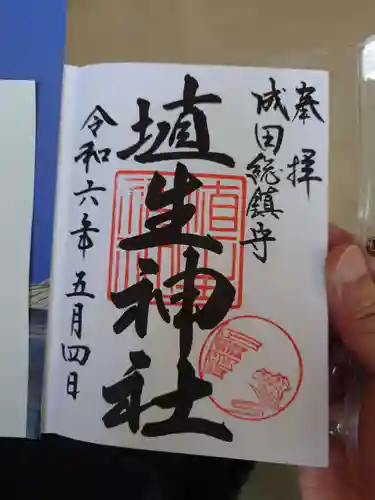 奉拝
成田総鎮守
埴生神社
令和六年五月四日